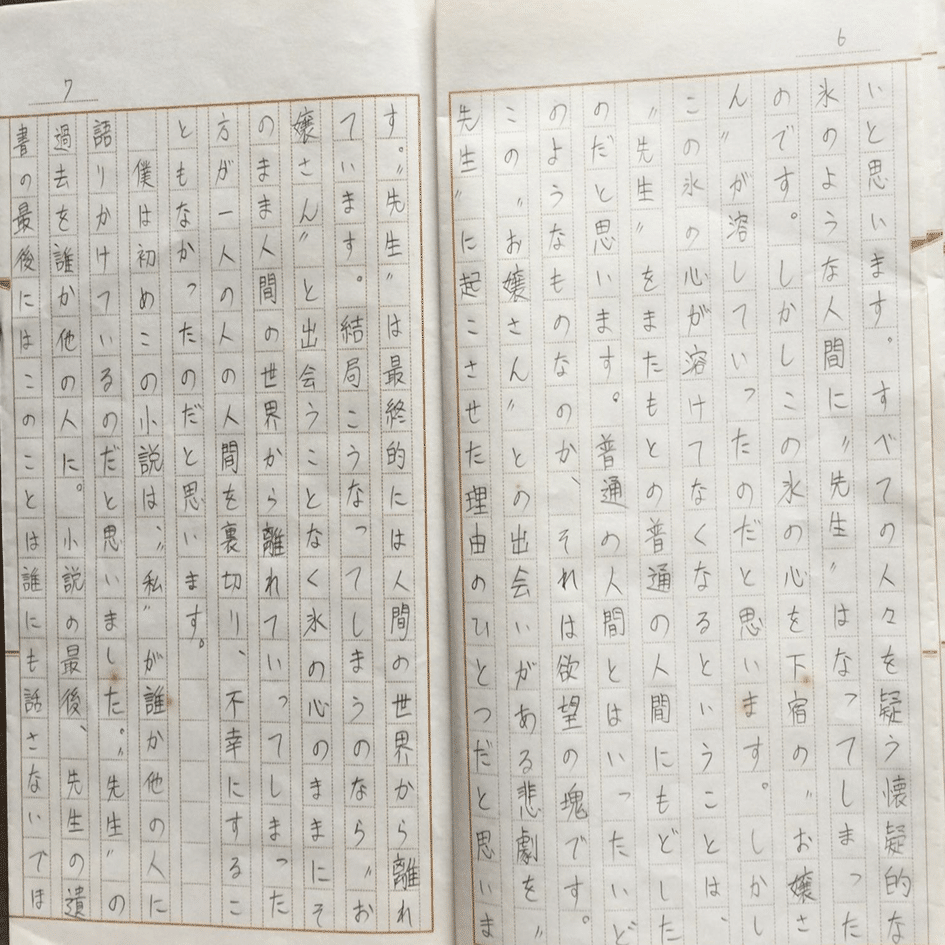 6
いと思います。すべての人々を疑う懐疑的な
氷のような人間に〝先生〟はなってしまった
のです。しかしこの氷の心を下宿の〝お嬢さ
ん〟が溶していったのだと思います。しかし
この氷の心が溶けてなくなるということは、
〝先生〟をまたもとの普通の人間にもどした
のだと思います。普通の人間とはいったいど
のようなものなのか、それは欲望の塊です。
この〝お嬢さん〟との出会いがある悲劇を〝
先生〟に起こさせた理由のひとつだと思いま
7
す。〝先生〟は最終的には人間の世界から離れ
ています。結局こうなってしまうのなら〝お
嬢さん〟と出会うことなく氷の心のままにそ
のまま人間の世界から離れていってしまった
方が一人の人の人間を裏切り、不幸にするこ
ともなかったのだと思います。
僕は初めこの小説は、〝私〟が誰か他の人に
語りかけているのだと思いました。〝先生〟の
過去を誰か他の人に。小説の最後、先生の遺
書の最後にはこのことは誰にも話さないでほ